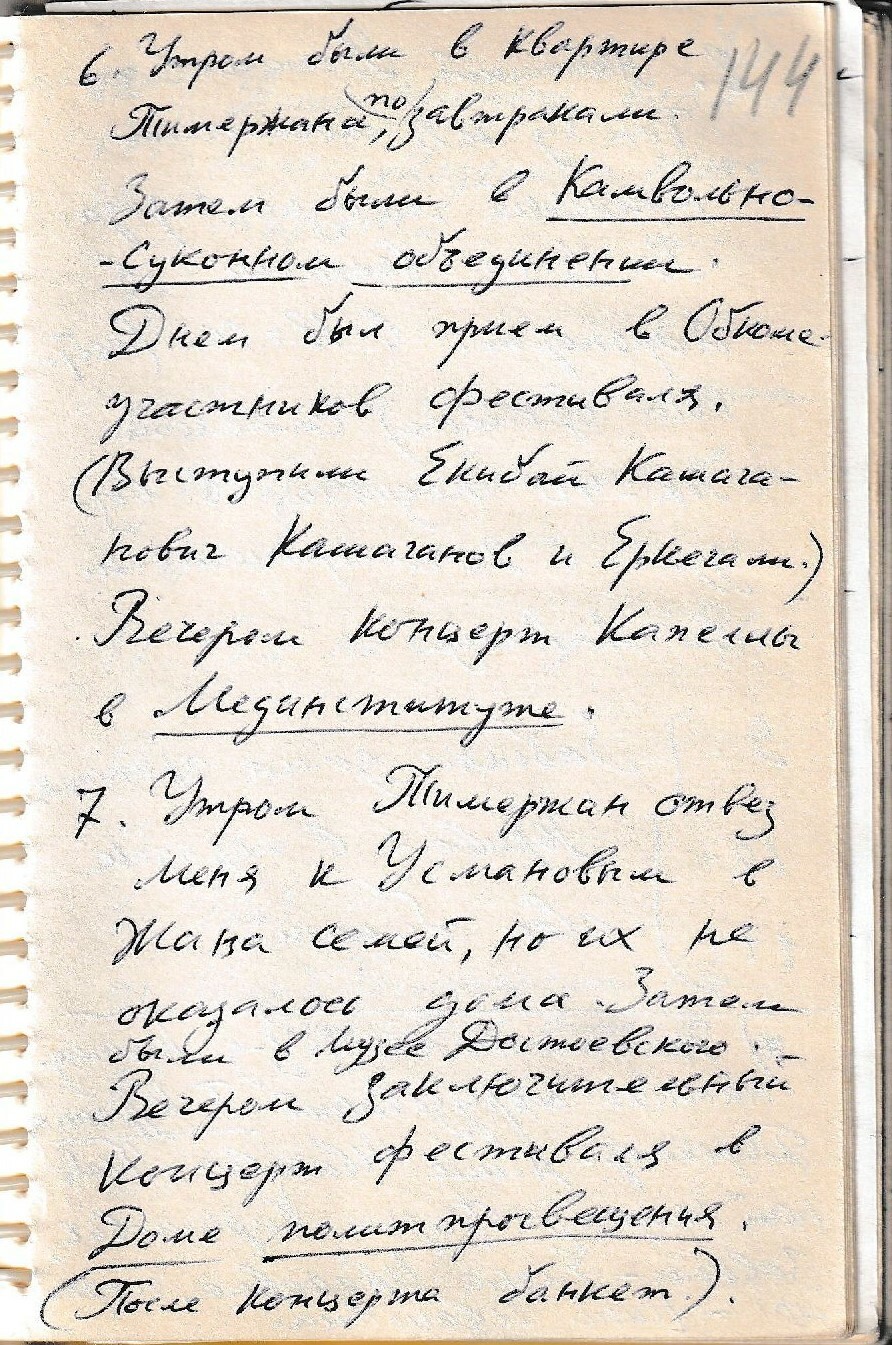 144
6. Утром были в квартире
Тимержана, позавтракали.
Затем были в Камвольно-
-Суконном объединении.
Днем был прием в Обкоме
участников фестиваля.
(Выступили Екибай Кашага-
нович Кашаганов и Еркегали.)
Вечером концерт Капеллы
в Мединституте.
7. Утром Тимержан отвез
меня к Усмановым в
Жана семей, но их не
оказалось дома. Затем
были в музее Достоевского.
Вечером заключительный
концерт фестиваля в
Доме политпросвещения.
(После концерта банкет.).